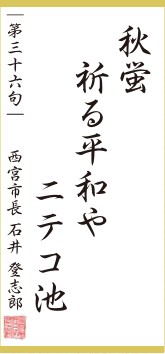 秋蛍
祈る平和や
ニテコ池
｜第三十六句｜
西宮市長 石井 登志郎